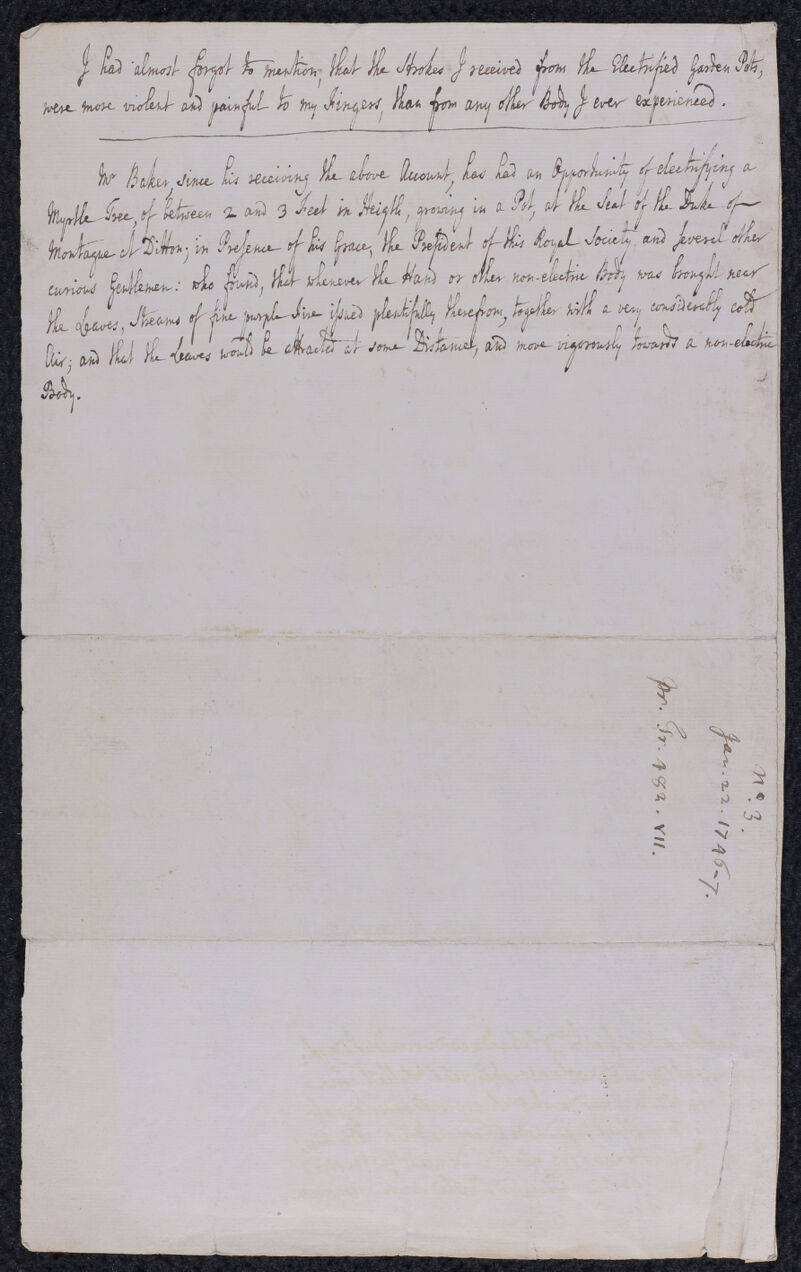 I had almost forgot to mention, that the Strokes I received from the Electrified Garden Pots,
were more violent and painful to my Fingers, than from any other Body I ever experienced.
Mr Baker, since his receiving the above Account, has had an Opportunity of electrifying a
Myrtle Tree, of between 2 and 3 Feet in Heigth, growing in a Pot, at the Seat of the Duke of
Montague at Ditton; in Presence of his Grace, the President of this Royal Society, and several other
curious Gentlemen: who found, that whenever the Hand or other non-electric Body was brought near
the Leaves, Streams of fine purple Fire issued plentifully therefrom, together with a very considerably cold
Air; and that the Leaves would be attracted at some Distance, and move vigorously towards a non-electric
Body.
No. 3.
Jan. 22. 1746-7.
Pr. Tr. 482. VII.